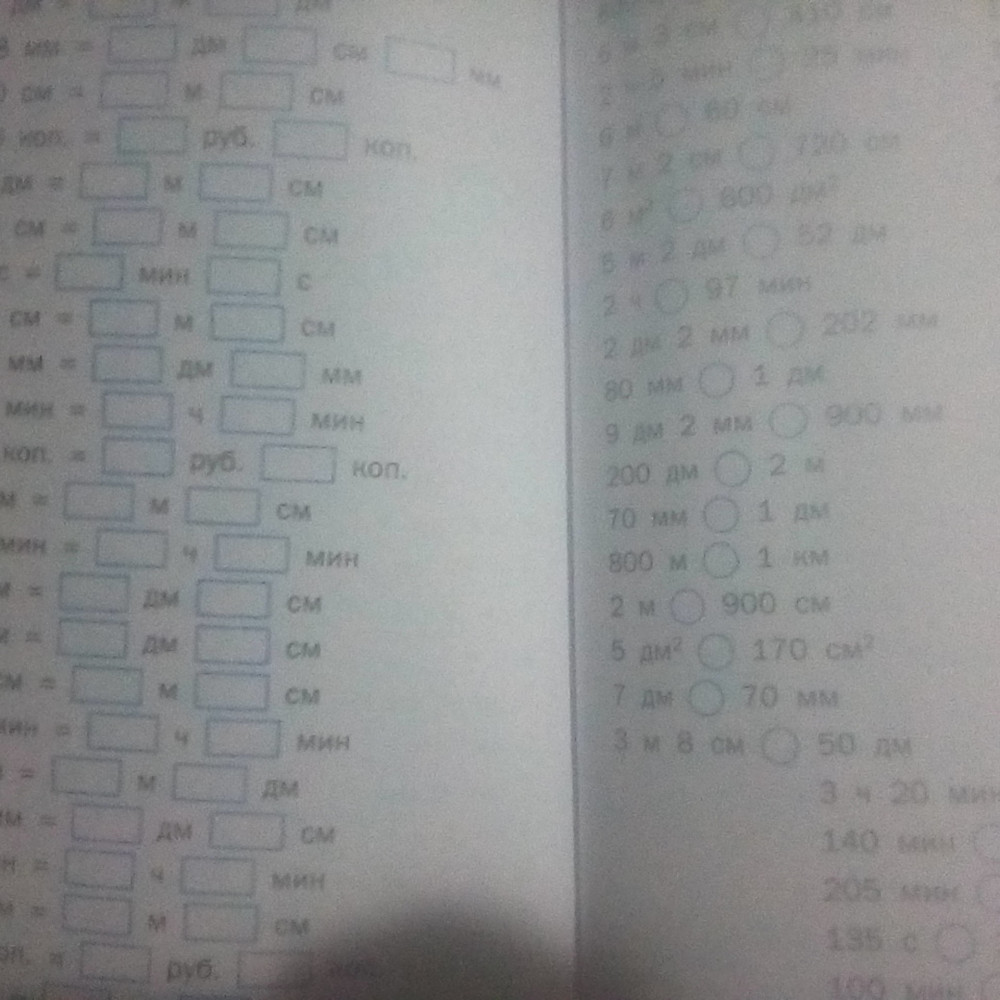 8 мм = дм см мм
см = м см
коп. = руб. коп.
дм = м см
см = м см
с = мин с
см = м см
мм = дм мм
мин = ч мин
коп. = руб. коп.
м = м см
мин = ч мин
= дм см
= дм см
см = м см
мин = ч мин
= м дм
= дм см
= ч мин
= м см
= руб.
3 см
мин 25 мин
6 м 60 см
7 м 2 см 720 см
6 м² 600 дм²
5 м 2 дм 52 дм
2 ч 97 мин
2 дм 2 мм 202 мм
80 мм 1 дм
9 дм 2 мм 900 мм
200 дм 2 м
70 мм 1 дм
800 м 1 км
2 м 900 см
5 дм² 170 см²
7 дм 70 мм
3 м 8 см 50 дм
3 ч 20 мин
140 мин
205 мин
135 с
100 мин